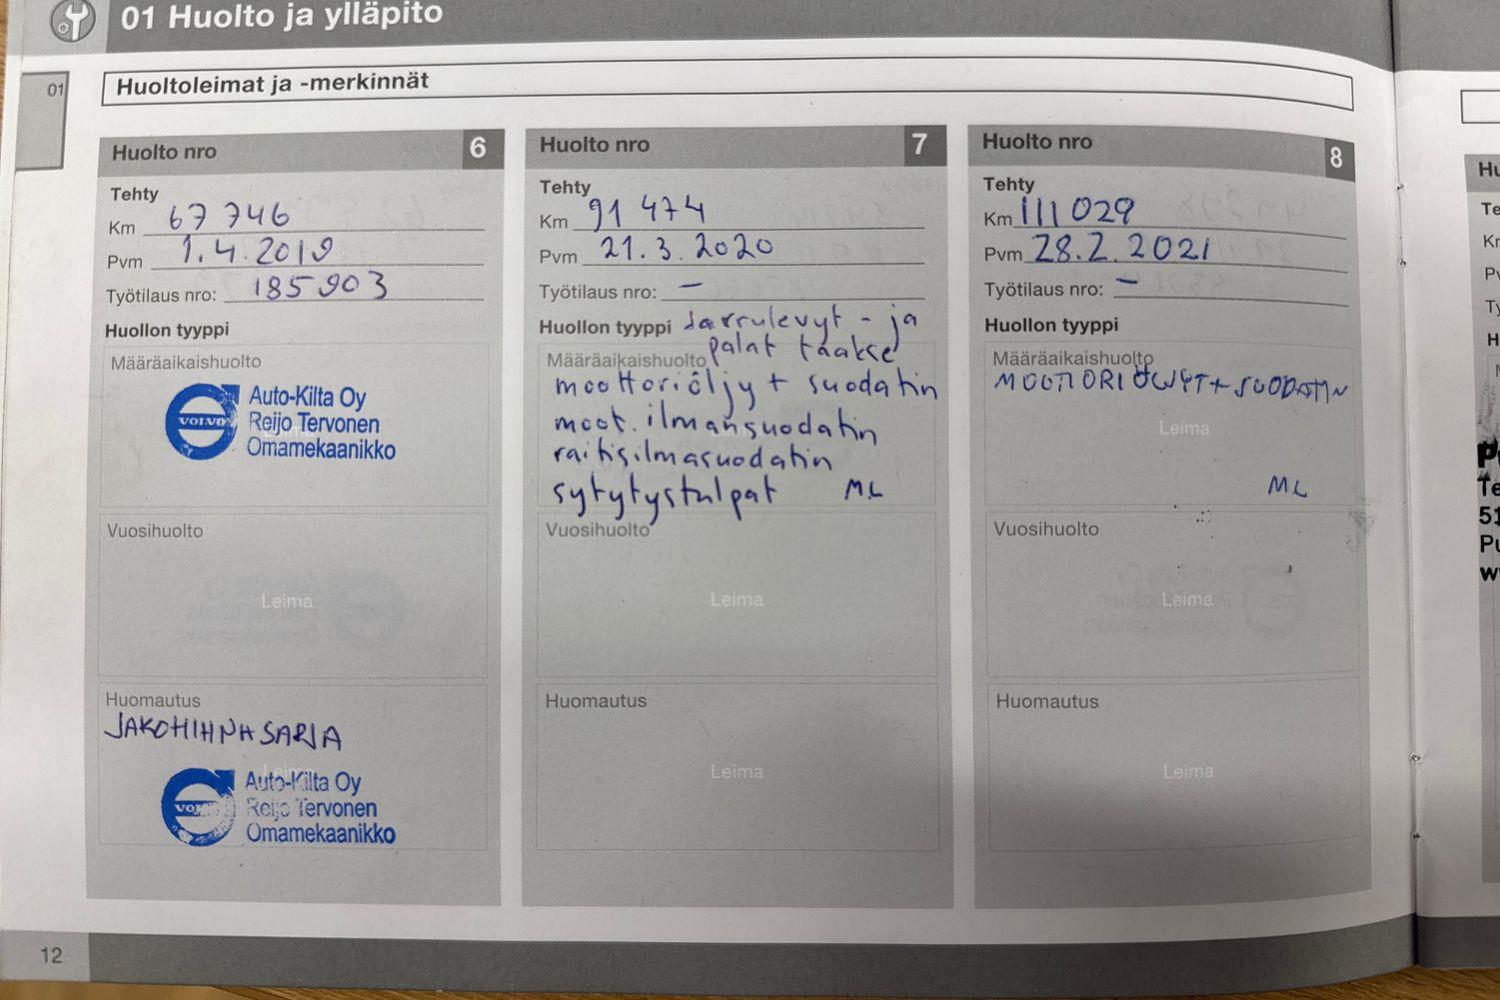 01 Huolto ja ylläpito
01
Huoltoleimat ja -merkinnät
Huolto nro 6
Tehty
Km 67 746
Pvm 1.4.2019
Työtilaus nro: 185903
Huollon tyyppi
Määräaikaishuolto
VOLVO
Auto-Kilta Oy
Reijo Tervonen
Omamekaanikko
Vuosihuolto
Leima
Huomautus
JAKOHIHNASARJA
Auto-Kilta Oy
Reijo Tervonen
Omamekaanikko
Huolto nro 7
Tehty
Km 91 474
Pvm 21.3.2020
Työtilaus nro: –
Huollon tyyppi Jarrulevyt - ja
palat taakse
Määräaikaishuolto
moottoriöljy + suodatin
moot. ilmansuodatin
raitisilmasuodatin
sytytystulpat ML
Vuosihuolto
Leima
Huomautus
Leima
Huolto nro 8
Tehty
Km 111 029
Pvm 28.2.2021
Työtilaus nro: –
Huollon tyyppi
Määräaikaishuolto
MOOTTORIÖLJYT + SUODATIN
Leima
ML
Vuosihuolto
Leima
Huomautus
Leima
12